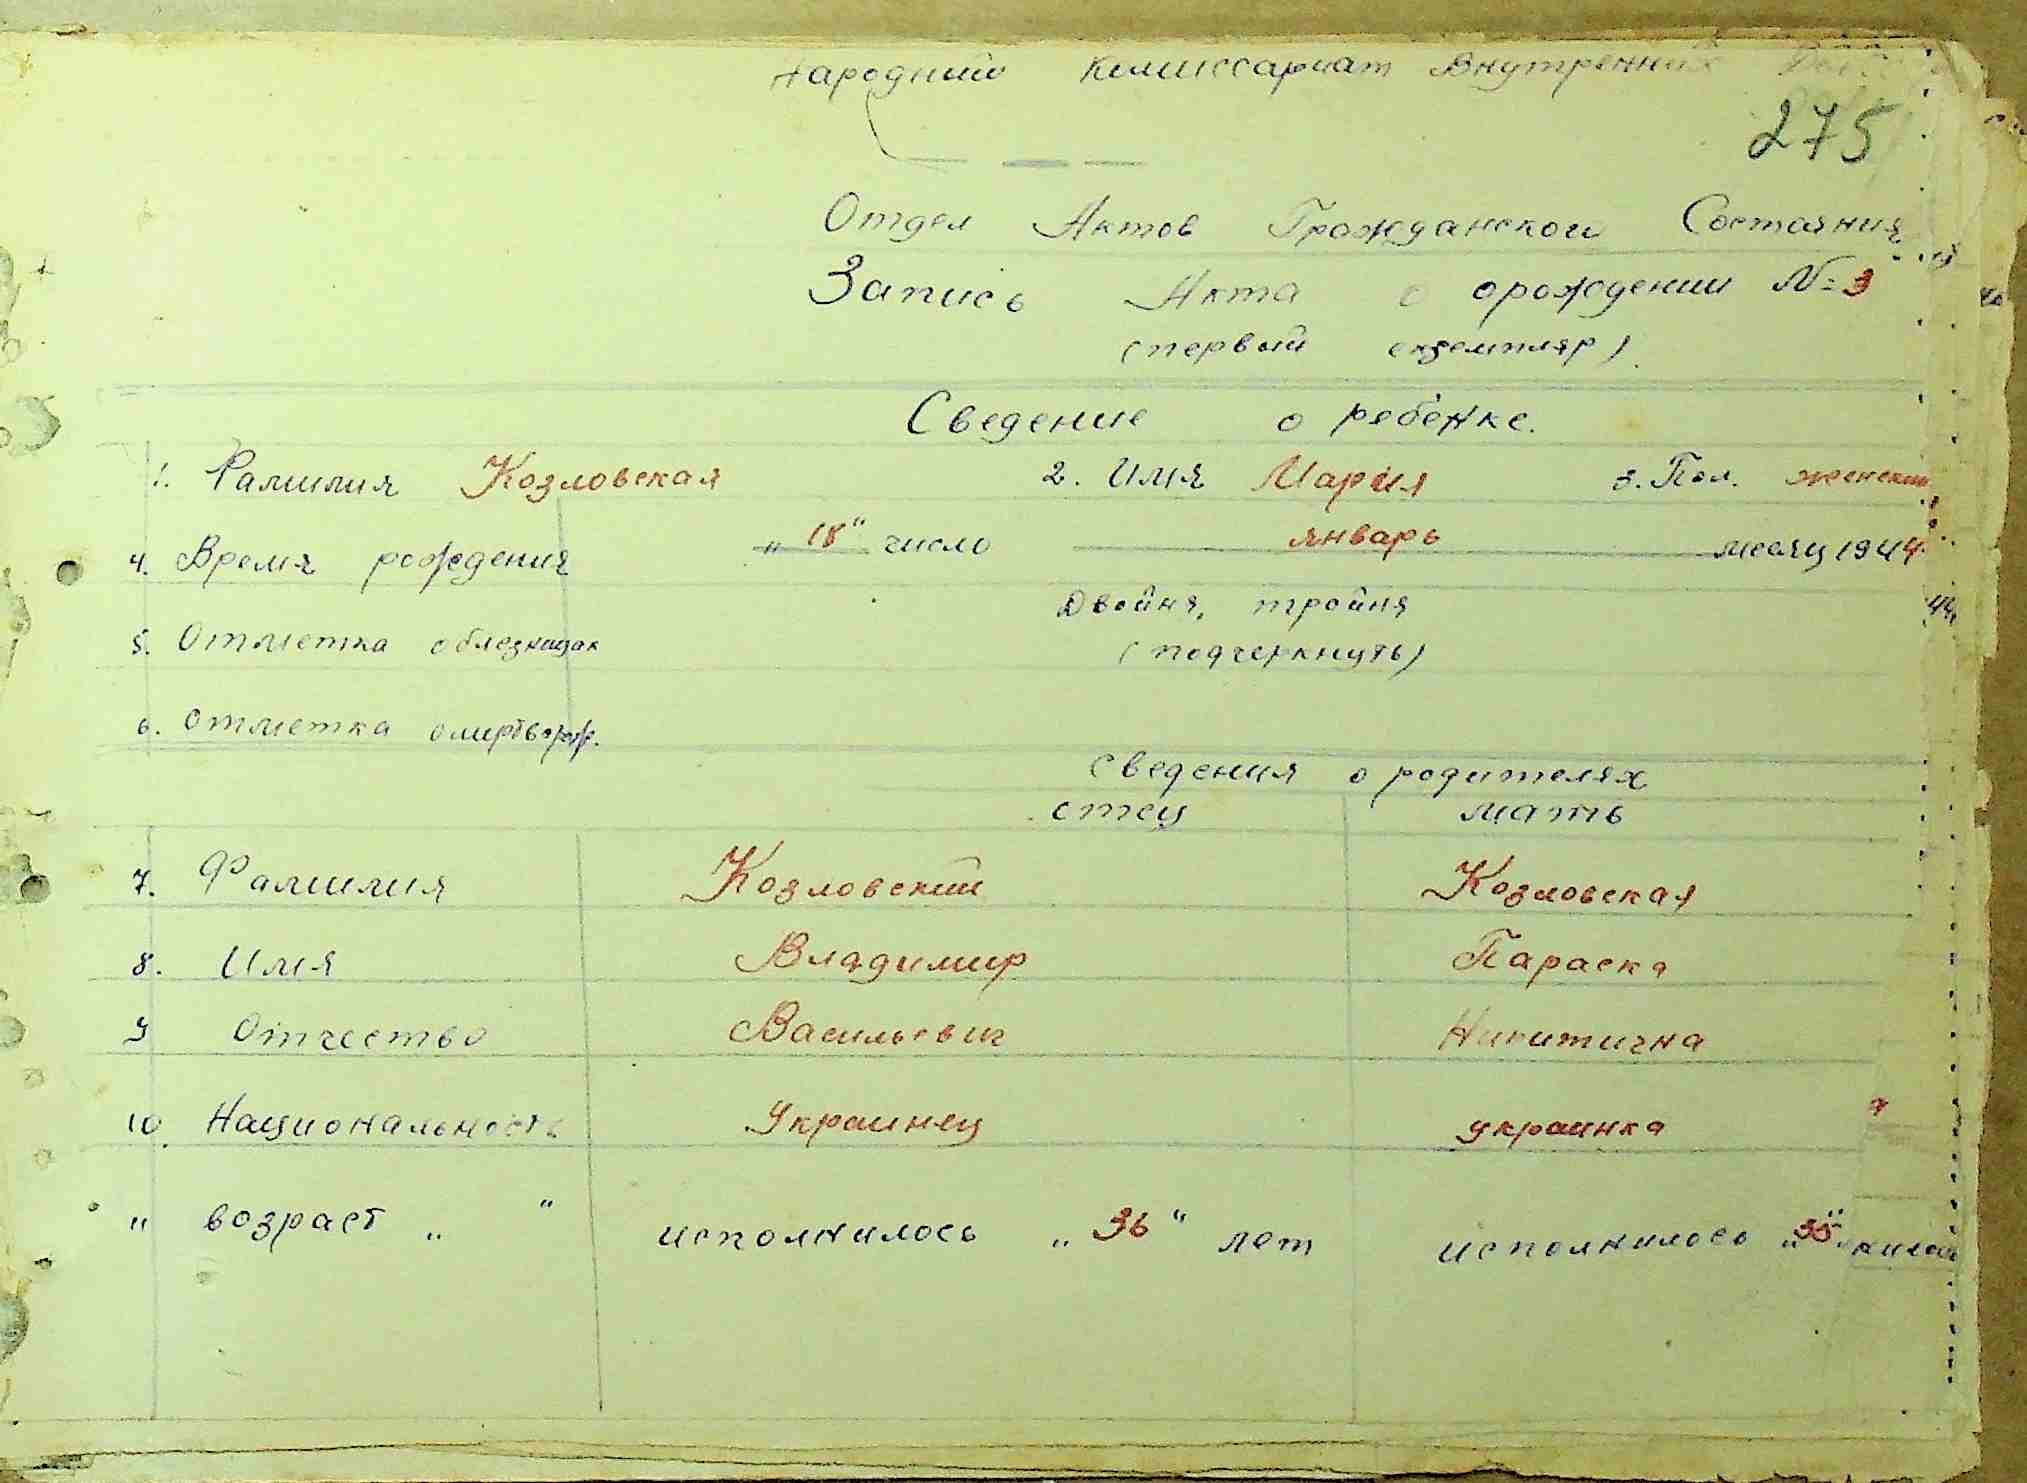 Народний Комиссариат Внутренних
275
Отдел Актов Гражданского Состояния
Запись Акта о орождении №3
(первый екземпляр)
Сведение о ребёнке.
1. Фамилия Козловская 2. Имя Мария 3. Пол. женский
4. Время рождения „18“ число январь месяц 1944
Двойня, тройня
5. Отметка облезнецах (подчеркнуть)
6. Отметка омертворож.
Сведения о родителях
отец мать
7. Фамилия Козловский Козловская
8. Имя Владимир Параска
9 Отчество Васильевич Никитична
10. Национальность Украинец украинка
" возраст „ " исполнилось „36“ лет исполнилось „35“